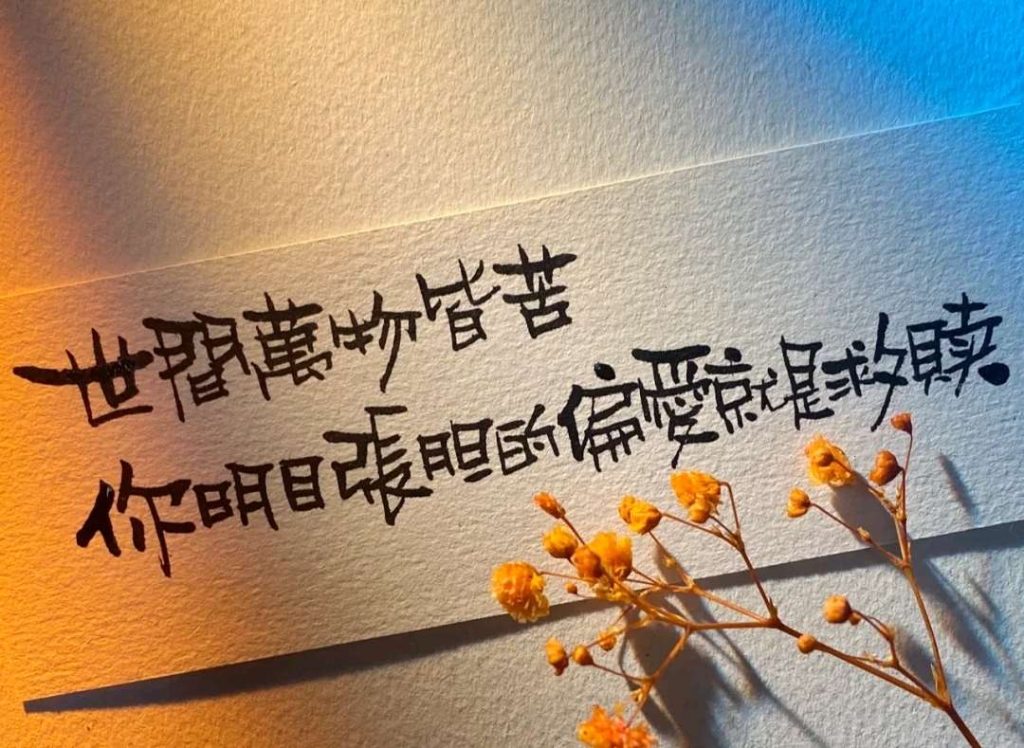 世間萬物皆苦
你明目張胆的偏愛就是救贖